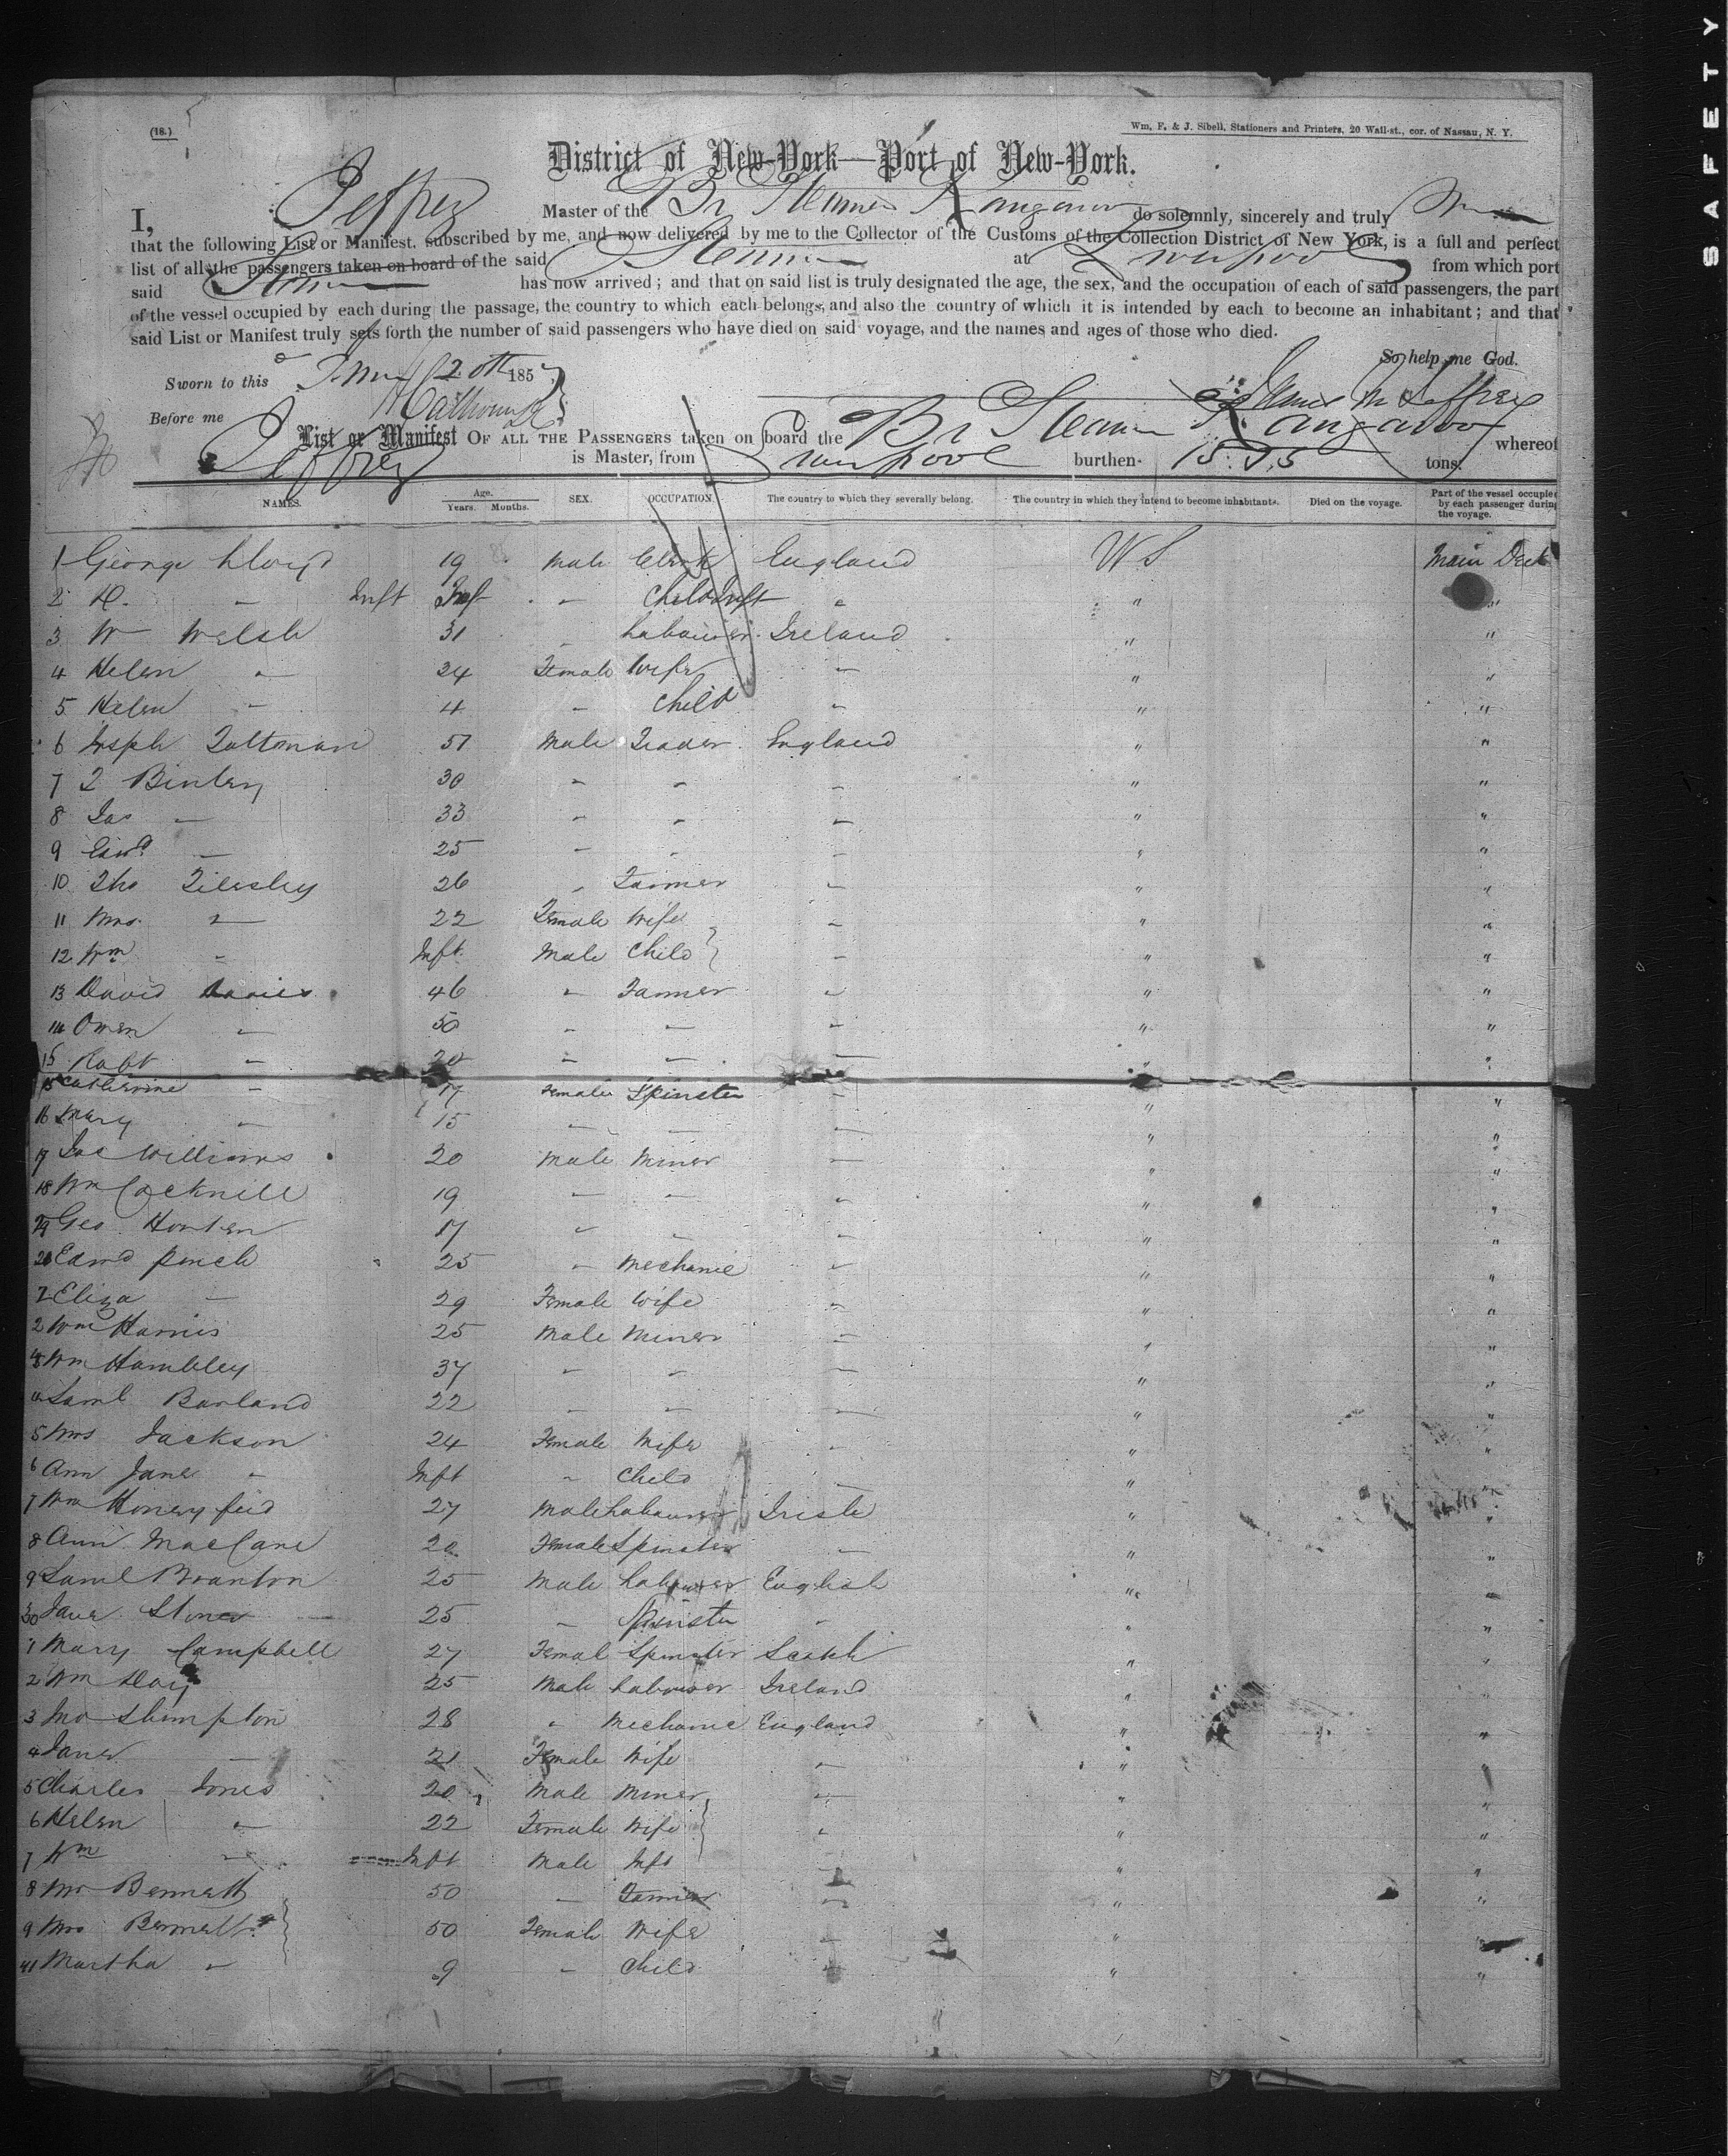 SAFETY
(18.)
Wm. F. & J. Sibell, Stationers and Printers, 20 Wall-st., cor. of Nassau, N. Y.
District of New-York—Port of New-York.
I, Jeffrey Master of the Br Steamer Kangaroo do solemnly, sincerely and truly
that the following List or Manifest, subscribed by me, and now delivered by me to the Collector of the Customs of the Collection District of New York, is a full and perfect
list of all the passengers taken on board of the said Steamer at Liverpool from which port
said Steamer has now arrived; and that on said list is truly designated the age, the sex, and the occupation of each of said passengers, the part
of the vessel occupied by each during the passage, the country to which each belongs, and also the country of which it is intended by each to become an inhabitant; and that
said List or Manifest truly sets forth the number of said passengers who have died on said voyage, and the names and ages of those who died.
So help me God.
Sworn to this 20th 185
Before me James M Jeffrey
List or Manifest OF ALL THE PASSENGERS taken on board the Br Steamer Kangaroo whereof
Jeffrey is Master, from Liverpool burthen tons.
NAMES. Age. Years. Months. SEX. OCCUPATION. The country to which they severally belong. The country in which they intend to become inhabitants. Died on the voyage. Part of the vessel occupied by each passenger during the voyage.
1 George Lloyd 19 Male Clerk England U S Main Deck
2 H. " Inft Inft " Child Inft " " "
3 W Welsh 31 " Labourer Ireland " "
4 Helen " 24 Female Wife " " "
5 Helen " 4 " Child " " "
6 Joseph Tattonan 57 Male Trader England " "
7 T Binley 30 " " " " "
8 Jas " 33 " " " " "
9 Edwd " 25 " " " " "
10 Tho Tilesley 26 " Farmer " " "
11 Mrs " 22 Female Wife " " "
12 Wm " Inft Male Child " " "
13 David Davies 46 " Farmer " " "
14 Owen " 50 " " " " "
15 Robt " 20 " " " " "
15 Catherine " 17 Female Spinster " " "
16 Mary " 15 " " " " "
17 Jas Williams 20 Male Miner " " "
18 Wm Cocknell 19 " " " " "
19 Geo Horten 17 " " " " "
20 Edmd Pinch 25 " Mechanic " " "
Eliza " 29 Female Wife " " "
2 Wm Harris 25 Male Miner " " "
Wm Hambley 37 " " " " "
Saml Barland 22 " " " " "
5 Mrs Jackson 24 Female Wife " " "
6 Ann Jane " Inft " Child " " "
7 Wm Honeyfeid 27 Male Labourer Irish " "
8 Ann MacCane 20 Female Spinster " " "
9 Saml Branton 25 Male Labourer English " "
30 Jane Stones 25 " Spinster " " "
1 Mary Campbell 27 Femal Spinster Scotch " "
2 Wm Day 25 Male Labourer Ireland " "
3 Jno Shimpton 28 " Mechanic England " "
4 Jane " 21 Female Wife " " "
5 Charles Jones 20 Male Miner " " "
6 Helen " 22 Female Wife " " "
7 Wm " Inft Male Inft " " "
8 Mr Bennett 50 " Farmer " " "
9 Mrs Bennett 50 Female Wife " " "
41 Martha " 9 " Child " " "